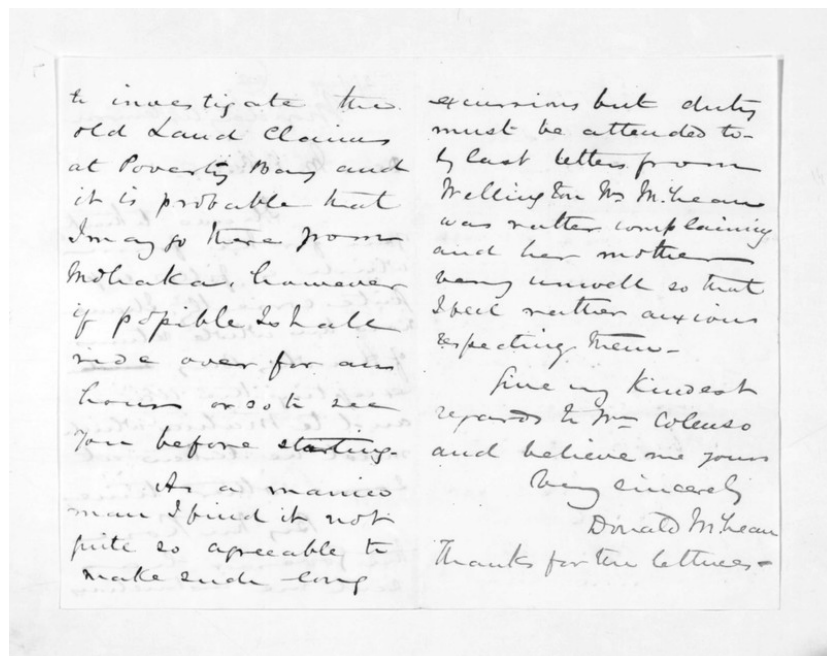 to investigate the
old Land Claims
at Poverty Bay and
it is probable that
I may go there from
Mohaka, however
if possible I shall
ride over for an
hour or so to see
you before starting.
As a married
man I find it not
quite so agreeable to
make such long
excursions but duty
must be attended to—
by last letters from
Wellington Mrs McLean
was rather complaining
and her mother
very unwell so that
I feel rather anxious
respecting them—
Give my kindest
regards to Mrs Colenso
and believe me yours
Very sincerely
Donald McLean
Thanks for the lettuces—